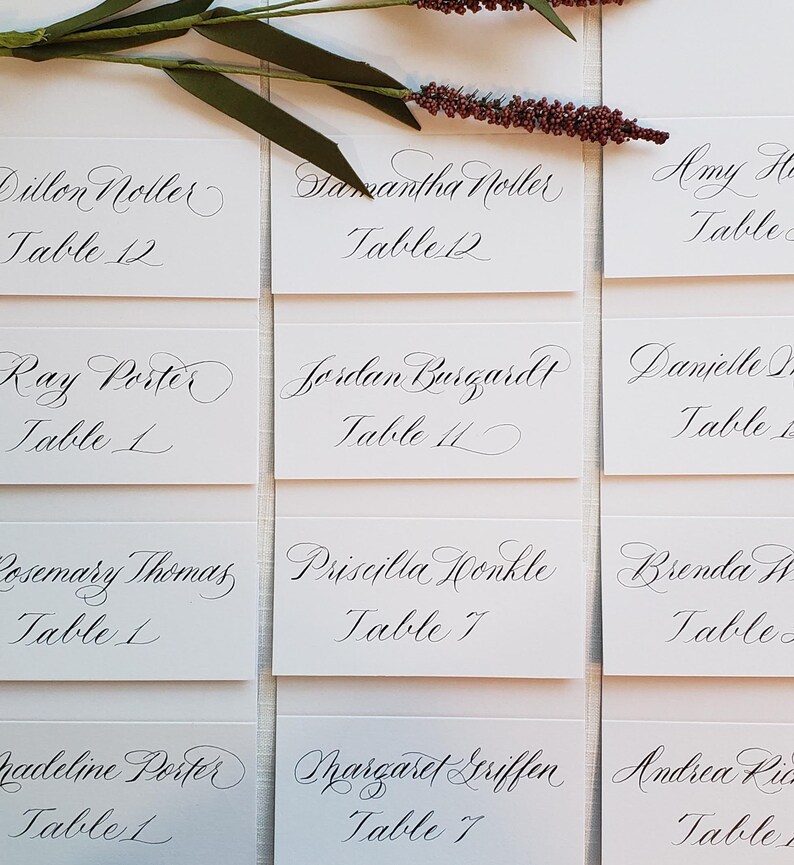 Dillon Noller
Table 12
Samantha Noller
Table 12
Amy
Table
Ray Porter
Table 1
Jordan Burgardt
Table 11
Danielle
Table
Rosemary Thomas
Table 1
Priscilla Honkle
Table 7
Brenda
Table
Madeline Porter
Table 1
Margaret Griffen
Table 7
Andrea
Table